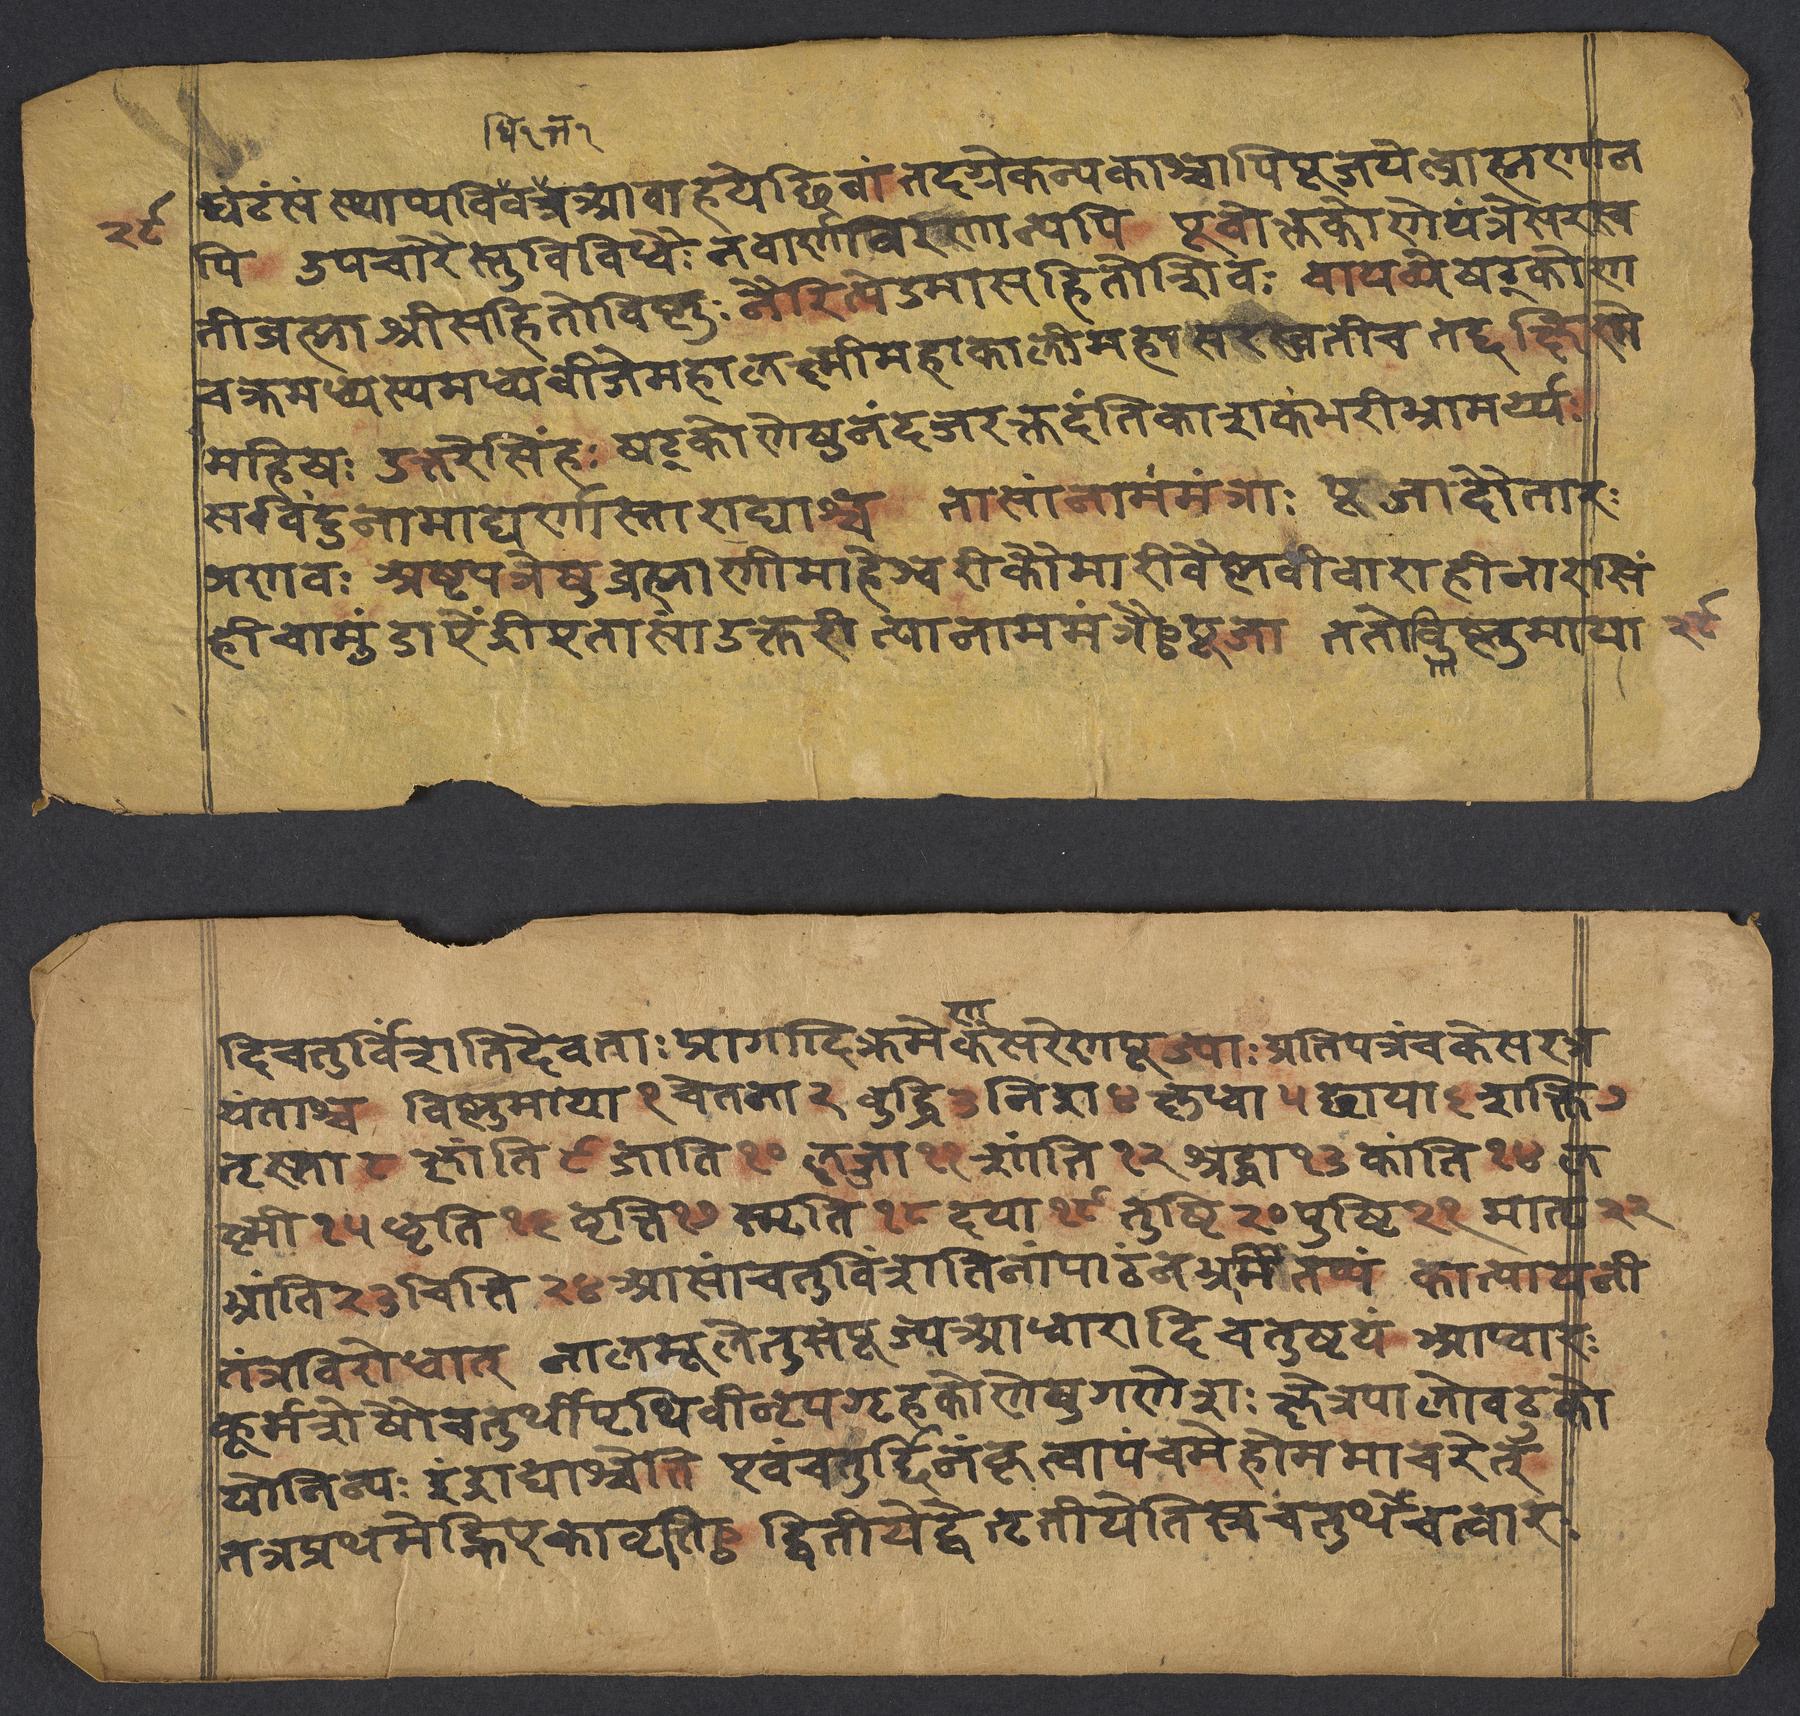 धि१त्र१
घटंसंस्थाप्यविवित्रेआवाहयेछिवां तदग्रेकन्यकाश्चापिपूजयेब्राह्मणान
२९
पि उपचारैस्तुविविधैः नवार्णावरणान्यपि पूर्वोक्तकोणेयंत्रेसरस्व
तीब्रह्मा श्रीसहितोविष्णुः नैरित्येउमासहितोशिवः वायव्येषट्कोण
चक्रमध्यस्थमध्यवीजेमहालक्ष्मीमहाकालीमहासरस्वतीच तद्दक्षिणे
महिषः उत्तरेसिंहः षट्कोणेषुनंदजरक्तदंतिकाशाकंभरीभ्रामर्य्यः
सविंदुनामाद्यर्णास्ताराद्याश्च तासांनाममंत्राः पूजादौतारः
प्रणवः अष्टपत्रेषुब्रह्माणीमाहेश्वरीकौमारीवैष्णवीवाराहीनारसिं
हीचामुंडाऐंद्रीएतासांउक्तरीत्यानाममंत्रैःपूजा ततोविष्णुमाया
२९
दिचतुर्विंशतिदेवताः प्रागादिक्रमेणकेसरेणपूज्याः प्रतिपत्रंचकेसरत्र
यंताश्च विष्णुमाया १ चेतना २ बुद्धि ३ निद्रा ४ क्षुधा ५ छाया ६ शक्ति ७
तृष्णा ८ क्षांति ९ जाति १० लज्जा ११ शांति १२ श्रद्धा १३ कांति १४ ल
क्ष्मी १५ धृति १६ वृत्ति १७ स्मृति १८ दया १९ तुष्टि २० पुष्टि २१ मातृ २२
भ्रांति २३ चित्ति २४ आसांचतुर्विंशतिनांपाठेनभ्रमितव्यं कात्यायनी
तंत्रविरोधात् नालमूलेतुसंपूज्यआधारादिचतुष्टयं आधारः
कूर्मशेषौचतुर्थीपृथिवीनृपगृहकोणेषुगणेशः क्षेत्रपालोवटुको
योनिन्यः इंद्राद्याश्चेति एवंचतुर्द्दिनंकृत्वापंचमेहोममाचरेत्
तत्रप्रथमेह्निएकावृत्तिः द्वितीयेद्वे तृतीयेतिस्रचतुर्थेचत्वारः